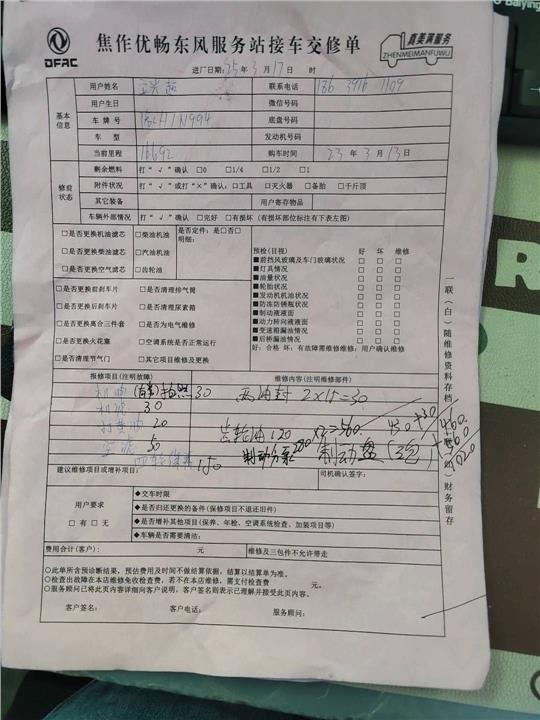 DFAC
焦作优畅东风服务站接车交修单
真美满服务
ZHENMEIMANFUWU
进厂日期: 25年 3月 17日 时
基本信息
用户姓名 联系电话 136 3916 1109
用户生日 微信号码
车牌号 底盘号码
车型 发动机号码
当前里程 16692 购车时间 23年 3月 13日
修前状态
剩余燃料 打“√”确认 □0 □1/4 □1/2 □1
附件状况 打“√”或打“×”确认: □工具 □灭火器 □备胎 □千斤顶
其它装备 用户寄存物品
车辆外部情况 打“√”确认 □完好 □有损坏 (有损坏部位标注有下表左图)
□是否更换机油滤芯 □柴油机油 是否定件: 是□否□
□是否更换柴油滤芯 □汽油机油 明细:
□是否更换空气滤芯 □齿轮油
□是否更换前刹车片 □是否清理排气筒
□是否更换后刹车片 □是否清理尿素箱
□是否更换离合三件套 □是否为电气维修
□是否更换火花塞 □空调系统是否正常运行
□是否清理节气门 □其它项目维修及更换
预检(目视) 好 坏 维修
■前挡风玻璃及车门玻璃状况 □ □ □
■灯具情况 □ □ □
■油量状况 □ □ □
■轮胎状况 □ □ □
■发动机机油状况 □ □ □
■防冻防锈瓶状况 □ □ □
■制动液液面 □ □ □
■动力转向液液面 □ □ □
■变速箱漏油情况 □ □ □
■后桥漏油情况 □ □ □
好: 合格 坏: 有故障需维修维修: 用户确认维修
报修项目(注明故障) 维修内容(注明维修部件)
机油 30 两油封 2×15=30
机滤 30
20 齿轮油 120
50 制动分泵 制动盘
150
建议维修项目或增补项目: 司机确认签字:
用户要求
□有 □无
◆交车时限
◆是否归还更换的备件 (保修项目不退还旧件)
◆是否增补其他项目(保养、年检、空调系统检查、加装项目等)
◆车辆是否需要清洁:
费用合计(客户): 元 维修及三包件不允许带走
○此单所含预诊断结果, 预估费用及时间不做结算依据, 结算以结算单为准。
○检查出故障在本店维修免收检查费, 若不在本店维修, 需支付检查费 元。
○服务顾问已将此页内容详细向客户说明, 客户签名则表示已理解并接受此页内容。
客户签名: 客户电话: 服务顾问:
一联(白)随维修资料存档
财务留存